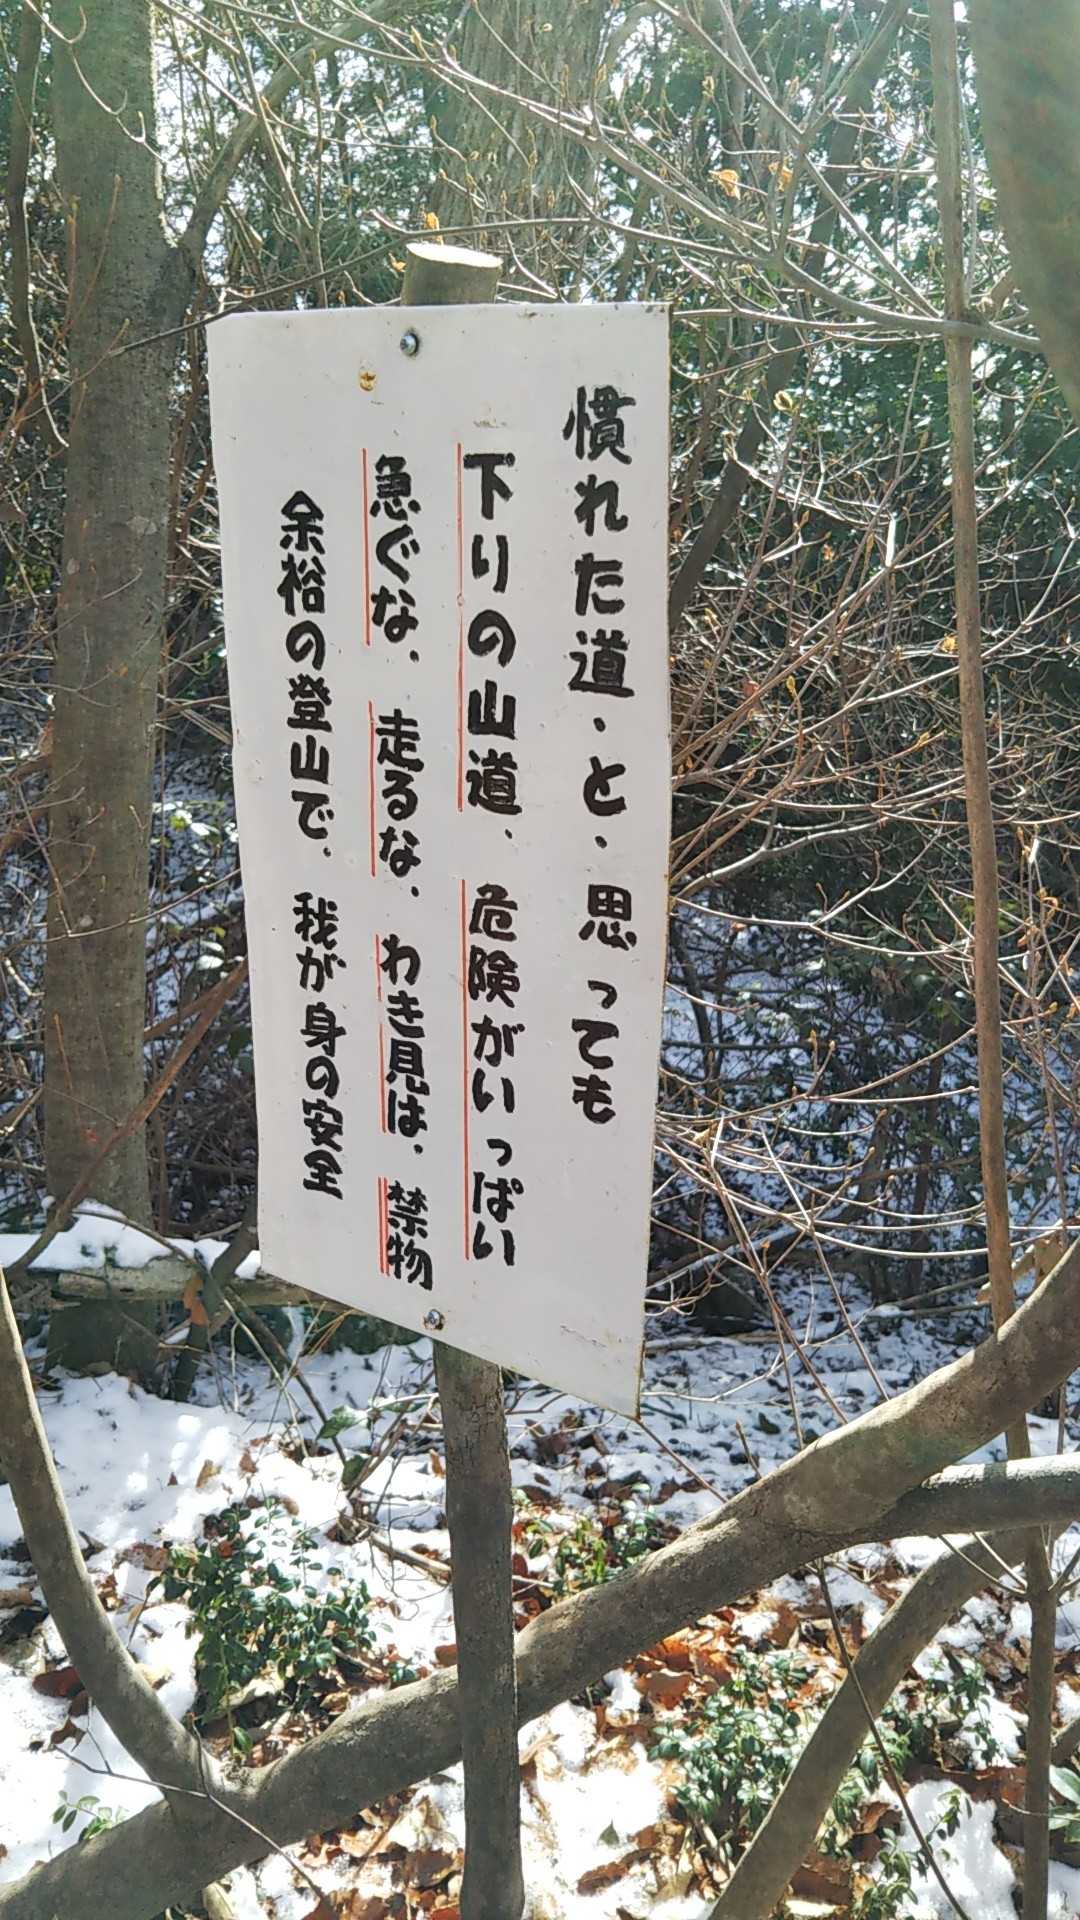 慣れた道・と・思っても
下りの山道、危険がいっぱい
急ぐな、走るな、わき見は、禁物
余裕の登山で、我が身の安全